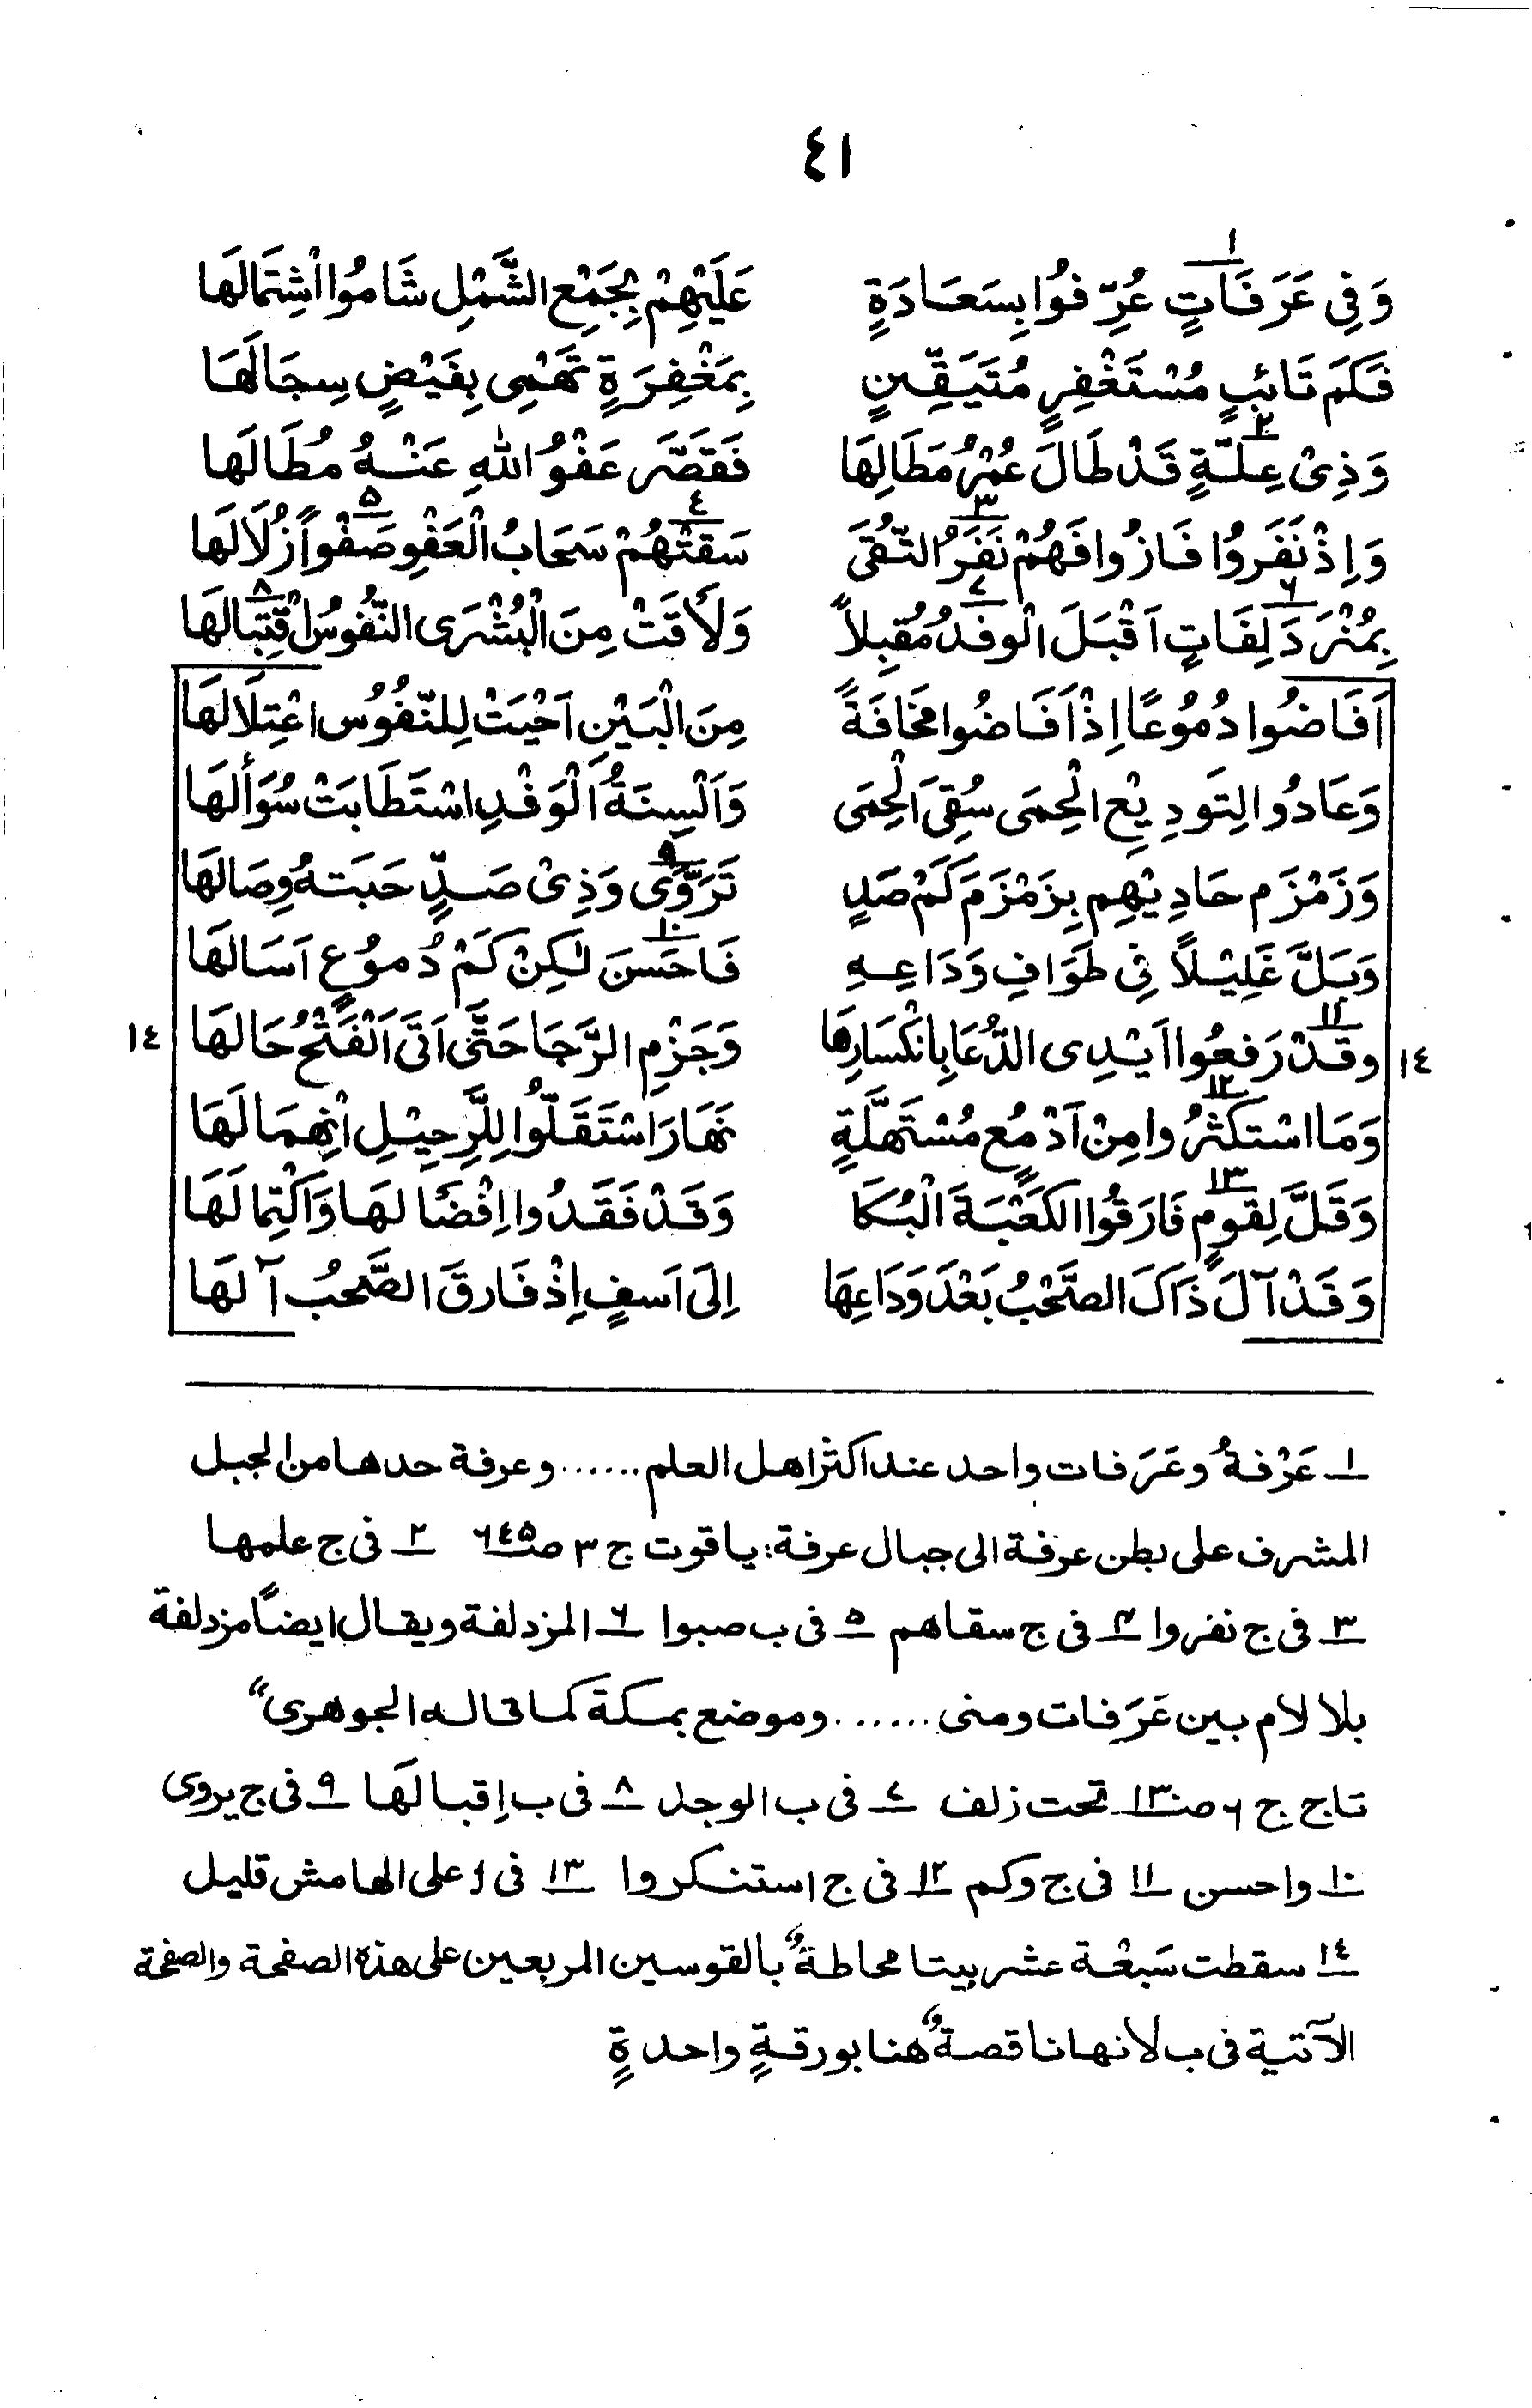 ٤١
١
وَفِى عَرَفَاتٍ عُرِّفُوا بِسَعَادَةٍ عَلَيْهِمْ بِجَمْعِ الشَّمْلِ شَامُوا اشْتِمَالَهَا
فَكَمَ تَائِبٍ مُسْتَغْفِرٍ مُتَيَقِّنٍ بِمَغْفِرَةٍ تَهْمِى بِفَيْضٍ سِجَالَهَا
٢
وَذِىْ عِلَّةٍ قَدْ طَالَ عُمْرُ مَطَالِهَا فَقَصَّرَ عَفْوُ اللهِ عَنْهُ مُطَالَهَا
٣ ٤ ٥
وَاِذْ نَفَرُوا فَازُوا فَهُمْ نَفَرُ التُّقَى سَقَتْهُمْ سَحَابُ الْعَفْوِ صَفْواً زُلَالَهَا
٦ ٧ ٨
بِمُزْدَلِفَاتٍ اَقْبَلَ الْوَفْدُ مُقْبِلاً وَلَاقَتْ مِنَ الْبُشْرَى النُّفُوسُ اقْتِبَالَهَا
اَفَاضُوا دُمُوعًا اِذْ اَفَاضُوا مَخَافَةً مِنَ الْبَيْنِ اَحْيَتْ لِلنُّفُوسِ اعْتِلَالَهَا
وَعَادُوا لِتَودِيْعِ الْحِمَى سُقِىَ الْحِمَى وَاَلْسِنَةُ الْوَفْدِ اسْتَطَابَتْ سُوَألَهَا
٩
وَزَمْزَم حَادِيْهِم بِزَمْزَمَ كَمْ صَدٍ تَرَوَّى وَذِىْ صَدٍّ حَبَتهُ وِصَالَهَا
١٠
وَبَلَّ غَلِيْلاً فِى طَوَافِ وَدَاعِهِ فَاحَسنَ لٰكِنْ كَمْ دُموُعٍ اَسَالَهَا
١١
١٤ وقَدْ رَفعُوا اَيْدِى الدُّعَا بِانْكْسَارِهَا وَجَزْمِ الرَّجَا حَتَّى اَتَى اَلْفَتْحُ حَالَهَا ١٤
١٢
وَمَا اسْتكثَرُوا مِنْ اَدْمُعٍ مُسْتَهَلَّةٍ نَهَارَ اسْتَقَلُّوا لِلرَّحِيْلِ انْهِمَالَهَا
١٣
وَقَلَّ لِقَومٍ فَارَقُوا الكَعْبَةَ الْبُكَا وَقَدْ فَقَدُوا اِفْضَالَهَا وَاكْتِمَالَهَا
وَقَدْ آلَ ذَاكَ الصَّحْبُ بَعْدَ وَدَاعِهَا اِلَى اَسفٍ اِذْ فَارقَ الصَّحبُ آلَهَا
١ـ عَرْفةُ وعَرَفات واحد عند اكثر اهل العلم ...... وعرفة حدها من الجبل
المشرف على بطن عرفة الى جبال عرفة: ياقوت ج ٣ صـ ٦٤٥ ٢ـ فى ج علمها
٣ـ فى ج نفروا ٤ـ فى ج سقاهم ٥ـ فى ب صبوا ٦ـ المزدلفة ويقال ايضاً مزدلفة
بلا لام بين عَرَفات ومنى ...... وموضع بمكة كما قاله الجوهرى“
تاج ج ٦ صـ ١٣٠ تحت زلف ٧ـ فى ب الوجل ٨ـ فى ب اِقبالَهَا ٩ـ فى ج يروى
١٠ـ واحسن ١١ـ فى ج وكم ١٢ـ فى ج استنكروا ١٣ـ فى أ على الهامش قليل
١٤ـ سقطت سَبْعَة عشر بيتا محاطة بالقوسين المربعين على هذه الصفحة والصفحة
الآتية فى ب لانها ناقصة هنا بورقةٍ واحدةٍ